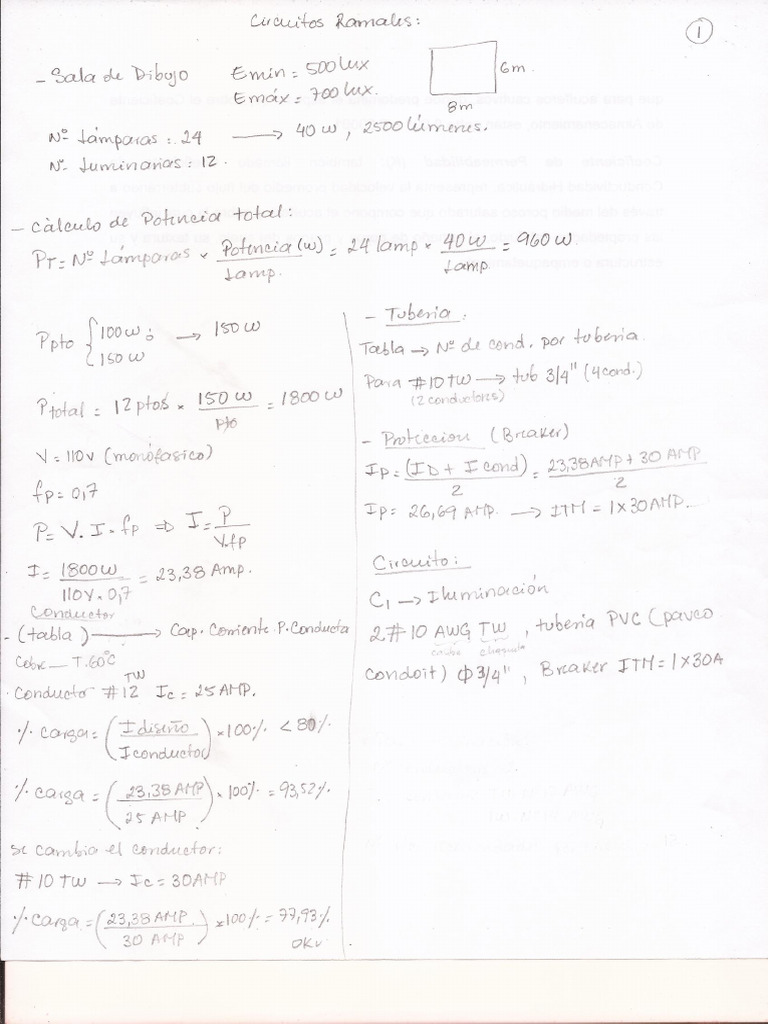 Circuitos Ramales:
1
- Sala de Dibujo Emin = 500 lux
Emáx = 700 lux.
6m.
8m
Nº Lámparas: 24 → 40 w, 2500 lúmenes.
Nº Luminarias: 12.
- Cálculo de Potencia total:
PT = Nº Lámparas × Potencia (w)/Lamp. = 24 lamp × 40 W/Lamp. = 960 W
Ppto { 100 w ó → 150 W
150 W
Ptotal = 12 ptos × 150 W/pto = 1800 W
V = 110 v (monófasico)
fp = 0,7
P = V. I. fp ⇒ I = P/V.fp
I = 1800 W/110 V. 0,7 = 23,38 Amp.
Conductor
- (tabla) → Cap. Corriente P. Conducta
Cobre — T. 60°C
Conductor #12 TW Ic = 25 AMP.
% carga = (I diseño/I conductor) × 100% < 80%
% carga = (23,38 AMP/25 AMP) × 100% = 93,52%
Se cambia el conductor:
#10 TW → Ic = 30 AMP
% carga = (23,38 AMP./30 AMP) × 100% = 77,93%
OK✓
- Tuberia:
Tabla → Nº de cond. por tuberia.
Para #10 TW → tub 3/4" (4 cond.)
(2 conductores)
- Proteccion (Breaker)
Ip = (ID + I cond)/2 = 23,38 AMP + 30 AMP/2
Ip = 26,69 AMP. → ITM = 1×30 AMP.
Circuito:
C1 → Iluminación
2 #10 AWG TW, tuberia PVC (pavco
calibre chaqueta
conduit) Φ 3/4", Breaker ITM = 1×30A